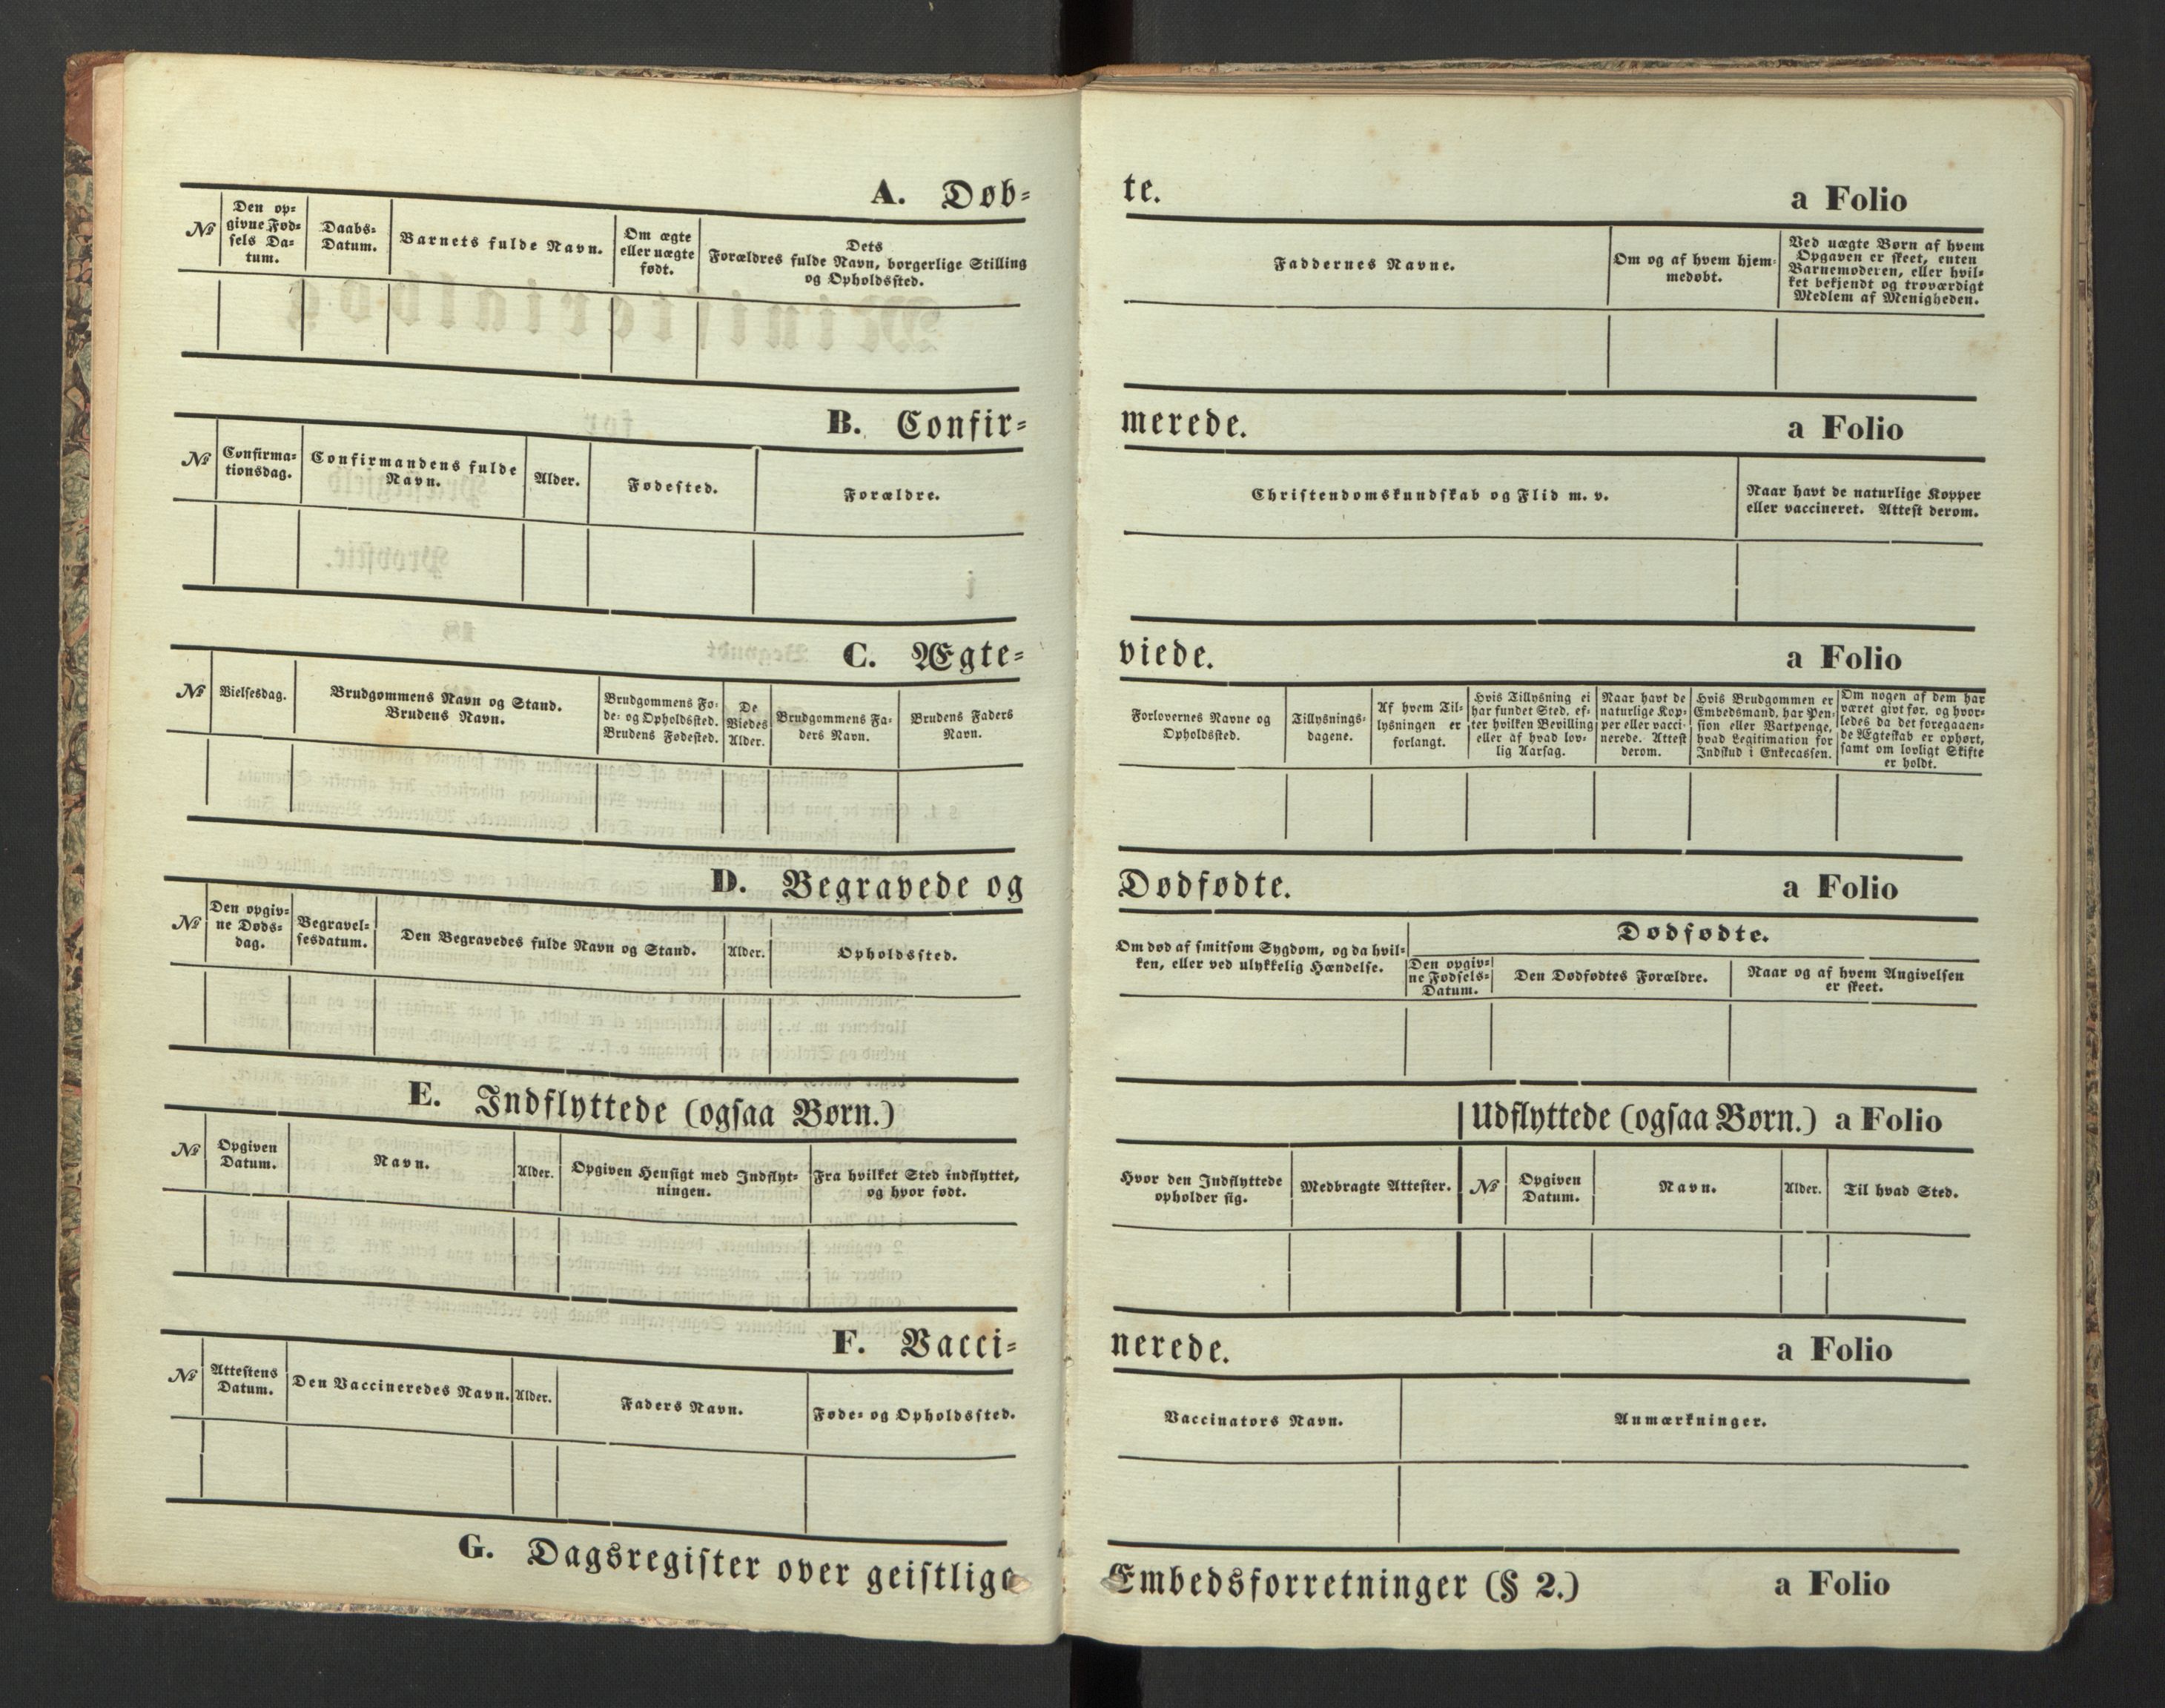 A. Døb-
№
Den op-
givne Fød-
sels Da-
tum.
Daabs-
Datum.
Barnets fulde Navn.
Om ægte
eller uægte
født.
Dets
Forældres fulde Navn, borgerlige Stilling
og Opholdssted.
te.
a Folio
Faddernes Navne.
Om og af hvem hjem-
medøbt.
Ved uægte Børn af hvem
Opgaven er skeet, enten
Barnemoderen, eller hvil-
ket bekjendt og troværdigt
Medlem af Menigheden.
B. Confir-
№
Confirma-
tionsdag.
Confirmandens fulde
Navn.
Alder.
Fødested.
Forældre.
merede.
a Folio
Christendomskundskab og Flid m. v.
Naar havt de naturlige Kopper
eller vaccineret. Attest derom.
C. Ægte-
№
Vielsesdag.
Brudgommens Navn og Stand.
Brudens Navn.
Brudgommens Fø-
de- og Opholdssted.
Brudens Fødested.
De
Viedes
Alder.
Brudgommens Fa-
ders Navn.
Brudens Faders
Navn.
viede.
a Folio
Forlovernes Navne og
Opholdssted.
Tillysnings-
dagene.
Af hvem Til-
lysningen er
forlangt.
Hvis Tillysning ei
har fundet Sted, ef-
ter hvilken Bevilling
eller af hvad lov-
lig Aarsag.
Naar havt de
naturlige Kop-
per eller vacci-
nerede. Attest
derom.
Hvis Brudgommen er
Embedsmand, har Pen-
sion eller Vartpenge,
hvad Legitimation for
Indskud i Enkecassen.
Om nogen af dem har
været givt før, og hvor-
ledes da det foregaaen-
de Ægteskab er ophørt,
samt om lovligt Skifte
er holdt.
D. Begravede og
№
Den opgiv-
ne Døds-
dag.
Begravel-
sesdatum.
Den Begravedes fulde Navn og Stand.
Alder.
Opholdssted.
Dødfødte.
a Folio
Om død af smitsom Sygdom, og da hvil-
ken, eller ved ulykkelig Hændelse.
Dødfødte.
Den opgiv-
ne Fødsels-
Datum.
Den Dødfødtes Forældre.
Naar og af hvem Angivelsen
er skeet.
E. Indflyttede (ogsaa Børn.)
№
Opgiven
Datum.
Navn.
Alder.
Opgiven Hensigt med Indflyt-
ningen.
Fra hvilket Sted indflyttet,
og hvor født.
Udflyttede (ogsaa Børn.) a Folio
Hvor den Indflyttede
opholder sig.
Medbragte Attester.
№
Opgiven
Datum.
Navn.
Alder.
Til hvad Sted.
F. Vacci-
№
Attestens
Datum.
Den Vaccineredes Navn.
Alder.
Faders Navn.
Føde- og Opholdssted.
nerede.
a Folio
Vaccinators Navn.
Anmærkninger.
G. Dagsregister over geistlige
Embedsforretninger (§ 2.)
a Folio